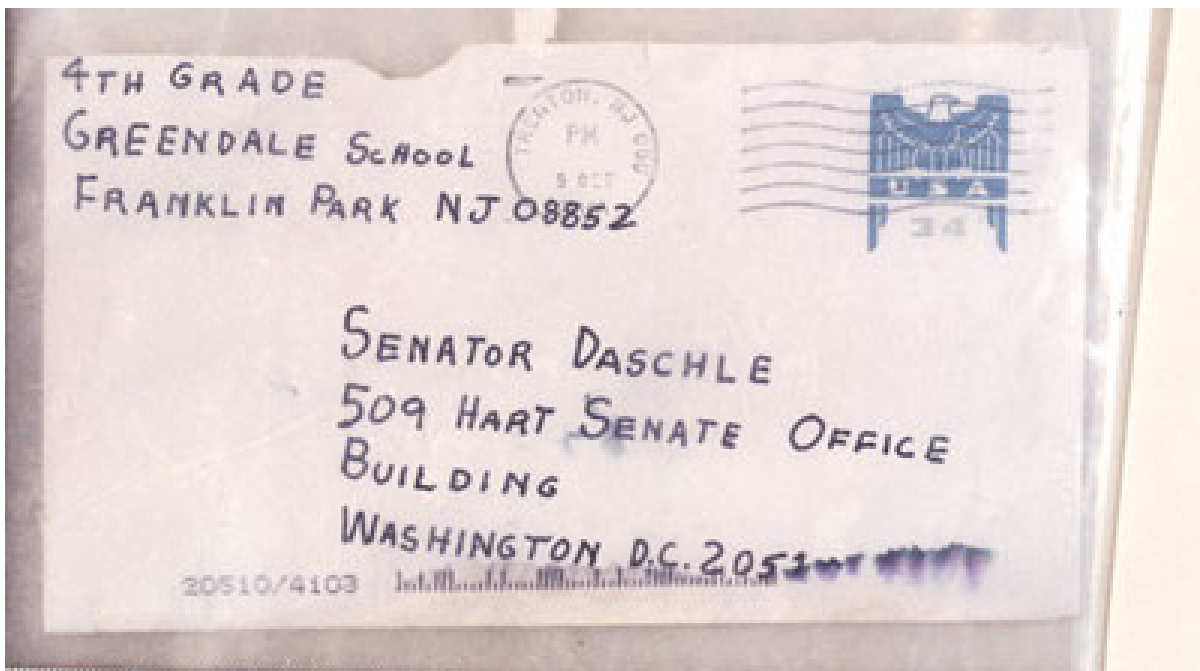 4TH GRADE
GREENDALE SCHOOL
FRANKLIN PARK NJ 08852
TRENTON, NJ
PM
9 OCT
USA
34
SENATOR DASCHLE
509 HART SENATE OFFICE
BUILDING
WASHINGTON D.C. 2051
20510/4103